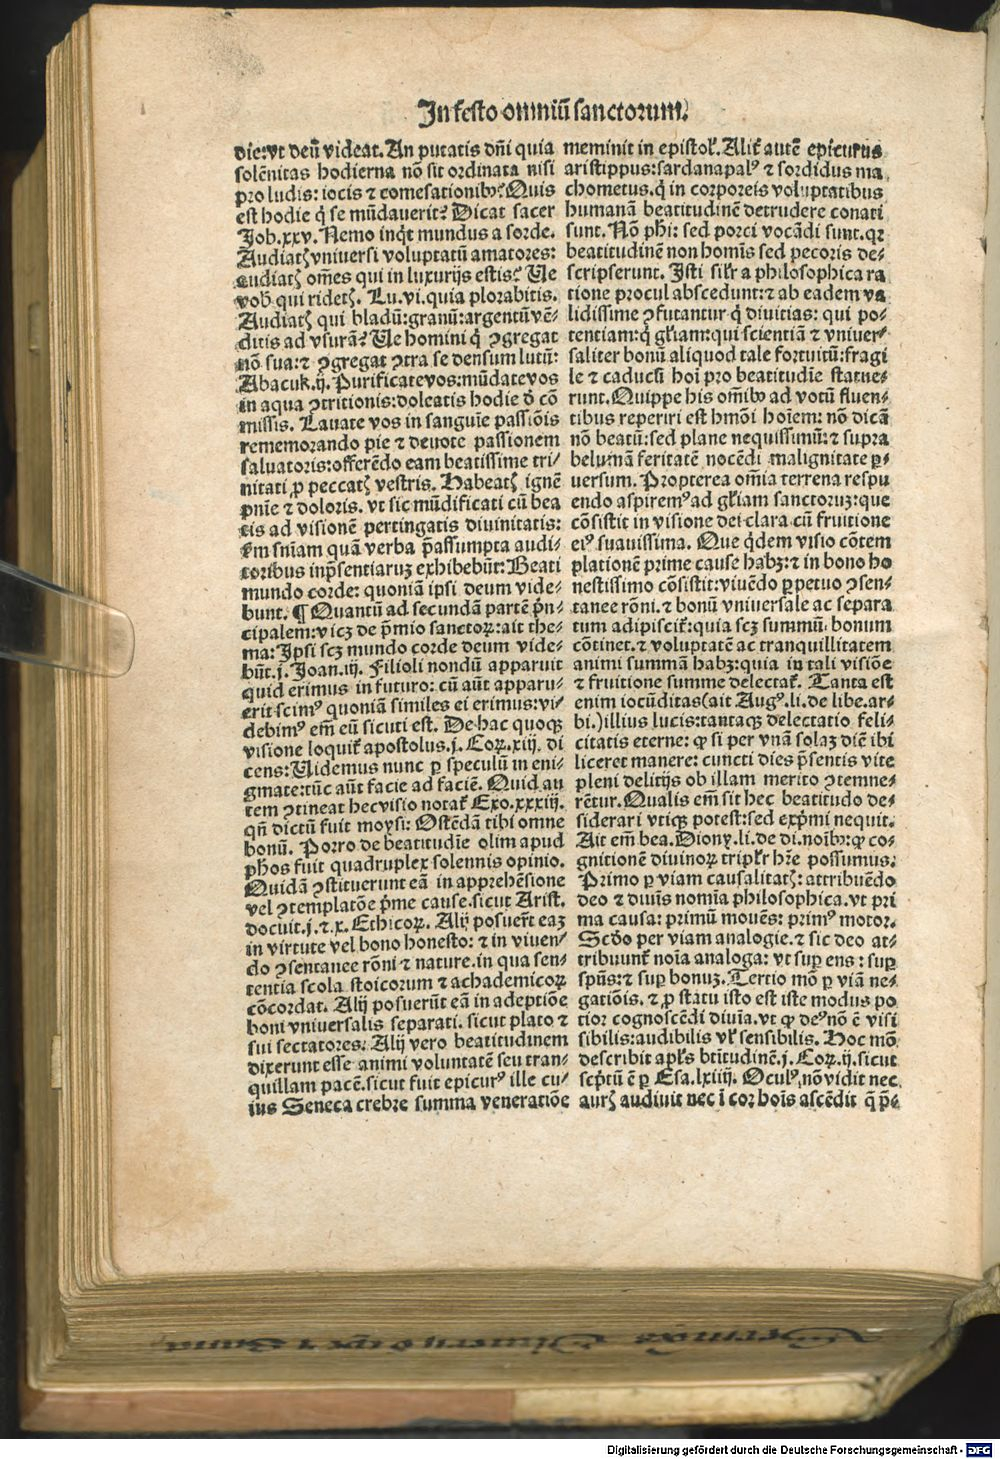 In festo omniū sanctorum.
die:vt deū videat. An putatis dn̄i quia
solēnitas hodierna nō sit ordinata nisi
pro ludis: iocis ⁊ comesationibꝰ? Quis
est hodie q̇ se mūdauerit? Dicat sacer
Job.xxv. Nemo inqt mundus a sorde.
Audiatꝭ vniuersi voluptatū amatores:
audiatꝭ om̄es qui in luxurijs estis? Ue
vob̄ qui ridetꝭ. Lu.vi.quia plorabitis.
Audiatꝭ qui bladū:granū:argentū vē-
ditis ad vsurā? Ue homini q̇ ꝯgregat
nō sua:⁊ ꝯgregat ꝯtra se densum lutū:
Abacuk.ij. Purificate vos:mūdate vos
in aqua ꝯtritionis:doleatis hodie d̄ cō
missis. Lauate vos in sanguīe passiōis
rememorando pie ⁊ deuote passionem
saluatoris:offerēdo eam beatissime tri-
nitati ꝓ peccatꝭ vestris. Habeatꝭ ignē
pn̄ie ⁊ doloris. vt sic mūdificati cū bea
tis ad visionē pertingatis diuinitatis:
km̄ sn̄iam quā verba p̄assumpta audi-
toribus inp̄sentiaruꝫ exhibebūt: Beati
mundo corde: quoniā ipsi deum vide-
bunt. ¶ Quantū ad secundā partē p̄n-
cipalem:vicꝫ de p̄mio sanctoꝝ:ait the-
ma: Ipsi scꝫ mundo corde deum vide-
būt.j. Joan.iij. Filioli nondū apparuit
quid erimus in futuro: cū aūt apparu-
erit scimꝰ quoniā similes ei erimus:vi-
debimꝰ em̄ eū sicuti est. De hac quoqꝫ
visione loquit̄ apostolus.j. Coꝝ.xiij. di
cens:Uidemus nunc ꝑ speculū in eni-
gmate:tūc aūt facie ad faciē. Quid au
tem ꝯtineat hec visio notat̄ Exo.xxxiij.
qn̄ dictū fuit moysi: Ostēdā tibi omne
bonū. Porro de beatitudīe olim apud
ph̄os fuit quadruplex solennis opinio.
Quidā ꝯstituerunt eā in apprehēsione
vel ꝯtemplatōe p̄me cause.sicut Arist.
docuit.j.⁊.x. Ethicoꝝ. Alij posuer̄t eaꝫ
in virtute vel bono honesto: ⁊ in viuen-
do ꝯsentanee rōni ⁊ nature.in qua sen-
tentia scola stoicorum ⁊ achademicoꝝ
cōcordat. Alij posuerūt eā in adeptiōe
boni vniuersalis separati. sicut plato ⁊
sui sectatores. Alij vero beatitudinem
dixerunt esse animi voluntatē seu tran-
quillam pacē.sicut fuit epicurꝰ ille cu-
ius Seneca crebre summa veneratiōe
meminit in epistol̄. Alit̄ autē epicurus
aristippus:sardanapalꝰ ⁊ sordidus ma
chometus.q̇ in corporeis voluptatibus
humanā beatitudinē detrudere conati
sunt. Nō ph̄i: sed porci vocādi sunt.qꝛ
beatitudinē non homīs sed pecoris de-
scripserunt. Isti silr̄ a philosophica ra
tione procul abscedunt:⁊ ab eadem va
lidissime ꝯfutantur q̇ diuitias: qui po-
tentiam:q̇ gl̄iam:qui scientiā ⁊ vniuer-
saliter bonū aliquod tale fortuitū:fragi
le ⁊ caducū hoī pro beatitudīe statue-
runt. Quippe his om̄ibꝰ ad votū fluen-
tibus reperiri est hmōi hoīem: nō dicā
nō beatū:sed plane nequissimū:⁊ supra
beluinā feritatē nocēdi malignitate ꝑ-
uersum. Propterea om̄ia terrena respu
endo aspiremꝰ ad gl̄iam sanctoruꝫ:que
cōsistit in visione dei clara cū fruitione
eiꝰ suauissima. Que q̇dem visio cōtem
plationē prime cause habꝫ:⁊ in bono ho
nestissimo cōsistit:viuēdo ꝑpetuo ꝯsen-
tanee rōni. ⁊ bonū vniuersale ac separa
tum adipiscit̄:quia scꝫ summū bonum
cōtinet.⁊ voluptatē ac tranquillitatem
animi summā habꝫ:quia in tali visiōe
⁊ fruitione summe delectat̄. Tanta est
enim iocūditas(ait Augꝰ.li.de libe.ar-
bi.)illius lucis:tantaqꝫ delectatio feli-
citatis eterne: ꝙ si per vnā solaꝫ diē ibi
liceret manere: cuncti dies p̄sentis vite
pleni delitijs ob illam merito ꝯtemne-
rētur. Qualis em̄ sit hec beatitudo de-
siderari vtiqꝫ potest:sed exp̄mi nequit.
Ait em̄ bea. Dionꝭ.li.de di.noīb̄:ꝙ co-
gnitionē diuinoꝝ triplr̄ hr̄e possumus:
Primo ꝑ viam causalitatꝭ: attribuēdo
deo ⁊ diuīs nomīa philosophica.vt pri
ma causa: primū mouēs: primꝰ motor.
Scd̄o per viam analogie.⁊ sic deo at-
tribuunt̄ noīa analoga: vt suꝑ ens: suꝑ
sp̄ūs:⁊ suꝑ bonuꝫ. Tertio mō ꝑ viā ne-
gatiōis. ⁊ ꝓ statu isto est iste modus po
tior cognoscēdi diuīa.vt ꝙ deꝰ nō ē visi
sibilis:audibilis vl̄ sensibilis. Hoc mō
describit apl̄s bt̄itudinē.j. Coꝝ.ij.sicut
scp̄tū ē ꝑ Esa.lxiiij. Oculꝰ nō vidit nec
aurꝭ audiuit nec ī cor hoīs ascēdit q̄ p̄-
Digitalisierung gefördert durch die Deutsche Forschungsgemeinschaft - DFG